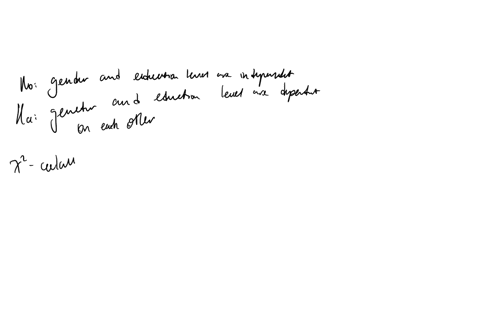 H₀: gender and education level are independent
Hₐ: gender and eduction level are dependent
on each other
χ² - calcu